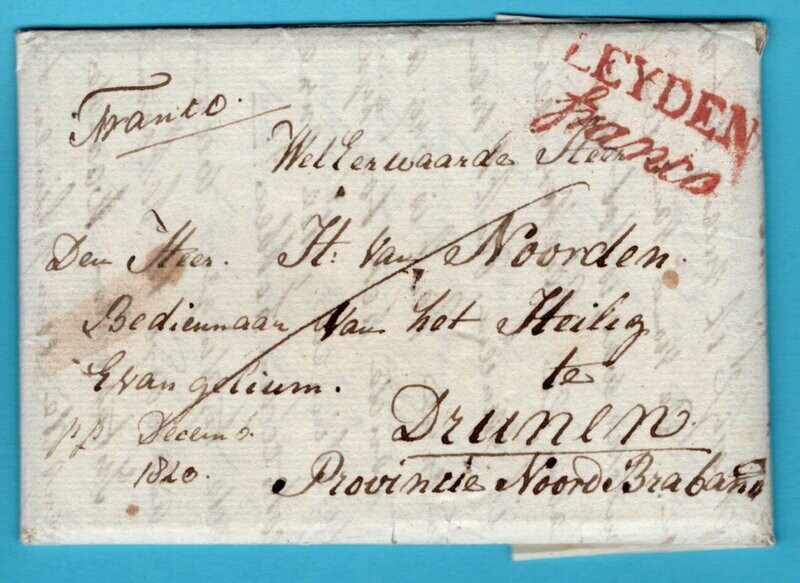 Franco.
LEYDEN
franco
WelEerwaarde Heer
Den Heer. H: van Noorden.
Bediennaar van het Heilig
Evangelium. te
pp Decemb. Drunen
1820. Provincie Noord Braband